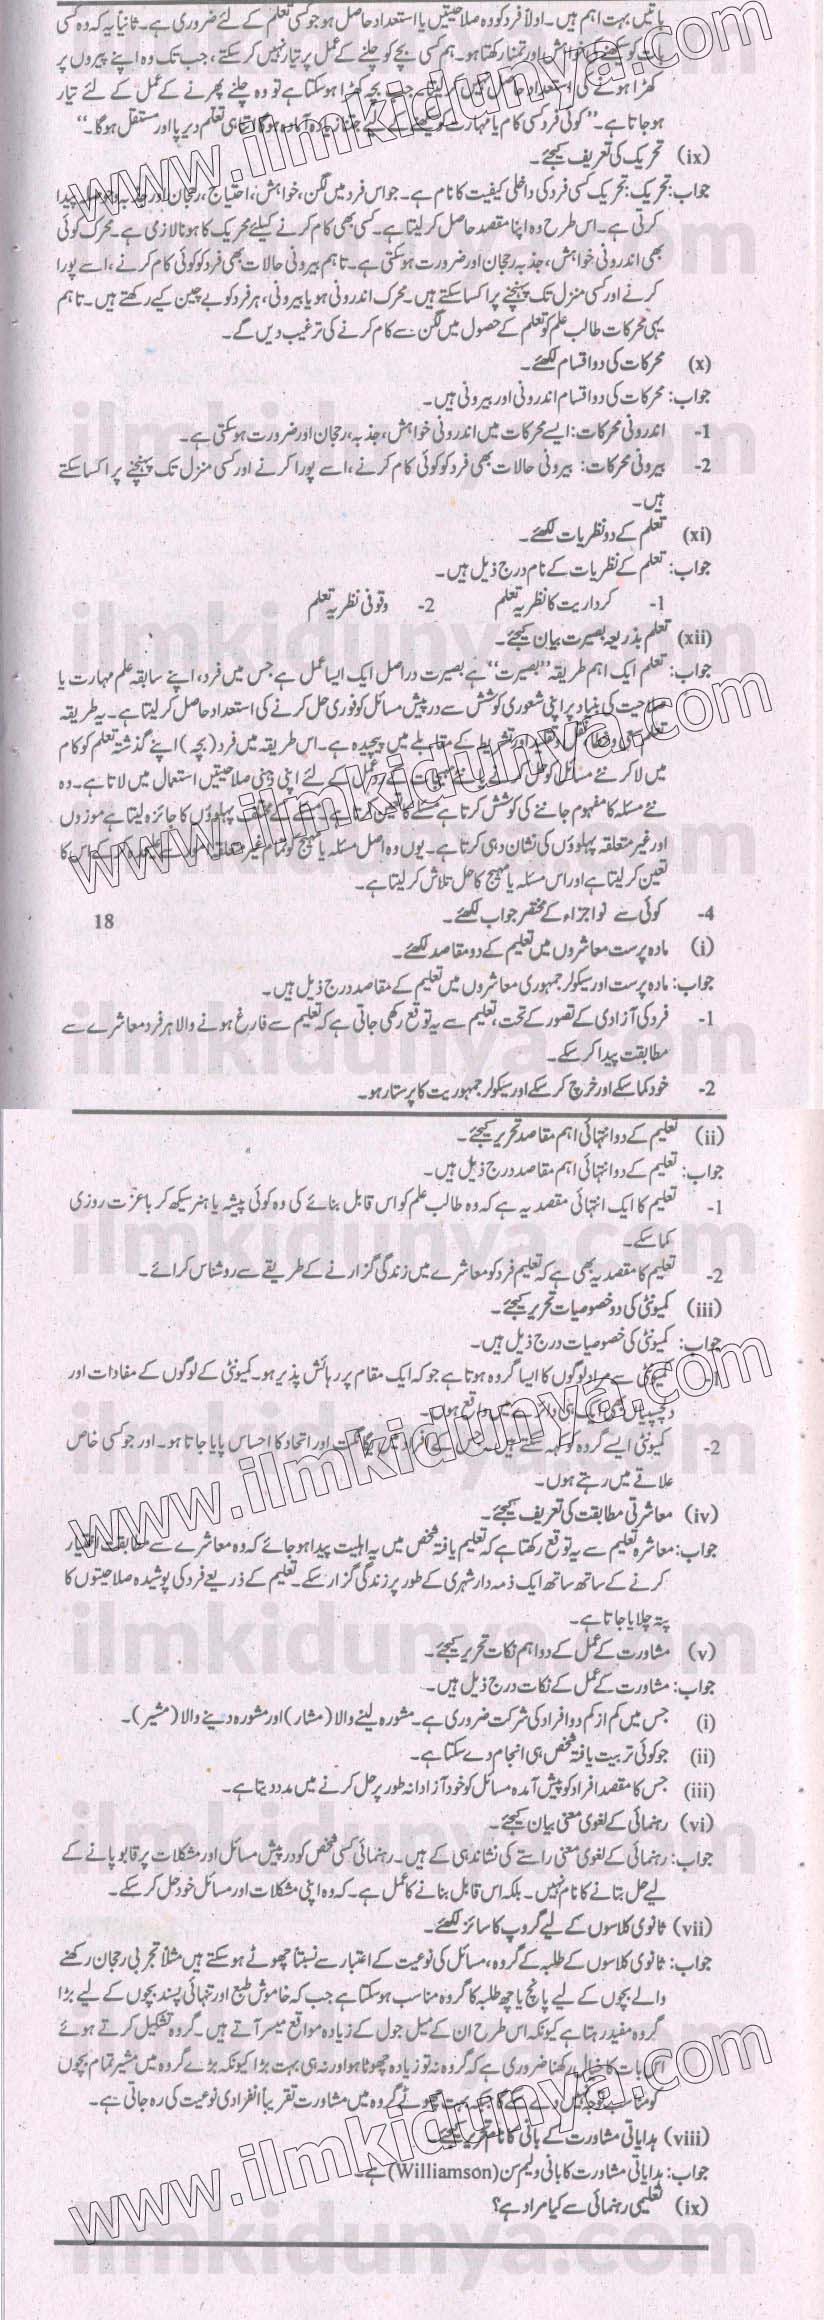 باتیں بہت اہم ہیں۔ اولاً فرد کو وہ صلاحیتیں یا استعداد حاصل ہو جو کسی تعلم کے لئے ضروری ہے۔ ثانیاً یہ کہ وہ کسی
بات کو سیکھنے کی خواہش اور تمنا رکھتا ہو۔ ہم کسی بچے کو چلنے کے عمل پر تیار نہیں کر سکتے، جب تک وہ اپنے پیروں پر
کھڑا ہونے کی استعداد حاصل نہیں کر لیتا۔ جب بچہ کھڑا ہو سکتا ہے تو وہ چلنے پھرنے کے عمل کے لئے تیار
ہو جاتا ہے۔ "کوئی فرد کسی کام یا مہارت کو سیکھنے کے لیے جتنا زیادہ آمادہ ہوگا اتنا ہی تعلم دیرپا اور مستقل ہوگا۔"
(ix) تحریک کی تعریف کیجئے۔
جواب: تحریک: تحریک کسی فرد کی داخلی کیفیت کا نام ہے۔ جو اس فرد میں لگن، خواہش، احتیاج، رجحان اور جذبہ وحوصلہ پیدا
کرتی ہے۔ اس طرح وہ اپنا مقصد حاصل کر لیتا ہے۔ کسی بھی کام کرنے کیلئے محریک کا ہونا لازی ہے۔ محرک کوئی
بھی اندرونی خواہش، جذبہ رجحان اور ضرورت ہو سکتی ہے۔ تاہم بیرونی حالات بھی فرد کو کوئی کام کرنے، اسے پورا
کرنے اور کسی منزل تک پہنچنے پر اکسا سکتے ہیں۔ محرک اندرونی ہو یا بیرونی، ہر فرد کو بے چین کیے رکھتے ہیں۔ تاہم
یہی محرکات طالب علم کو تعلم کے حصول میں لگن سے کام کرنے کی ترغیب دیں گے۔
(x) محرکات کی دو اقسام لکھئے۔
جواب: محرکات کی دو اقسام اندرونی اور بیرونی ہیں۔
-1 اندرونی محرکات: ایسے محرکات میں اندرونی خواہش، جذبہ، رجحان اور ضرورت ہو سکتی ہے۔
-2 بیرونی محرکات: بیرونی حالات بھی فرد کو کوئی کام کرنے، اسے پورا کرنے اور کسی منزل تک پہنچنے پر اکسا سکتے
ہیں۔
(xi) تعلم کے دو نظریات لکھئے۔
جواب: تعلم کے نظریات کے نام درج ذیل ہیں۔
-1 کرداریت کا نظریہ تعلم -2 وقوفی نظریہ تعلم
(xii) تعلم بذریعہ بصیرت بیان کیجئے۔
جواب: تعلم ایک اہم طریقہ "بصیرت" ہے بصیرت دراصل ایک ایسا عمل ہے جس میں فرد، اپنے سابقہ علم مہارت یا
صلاحیت کی بنیاد پر اپنی شعوری کوشش سے درپیش مسائل کو فوری حل کرنے کی استعداد حاصل کر لیتا ہے۔ یہ طریقہ
تعلم سعی و خطا، نقل و تقلید اور تشریط کے مقابلے میں پیچیدہ ہے۔ اس طریقہ میں فرد (بچہ) اپنے گذشتہ تعلم کو کام
میں لا کر نئے مسائل کو حل کرنے یا نئے مہیجات کے ردعمل کے لئے اپنی ذہنی صلاحیتیں استعمال میں لاتا ہے۔ وہ
نئے مسئلہ کا مفہوم جاننے کی کوشش کرتا ہے مسئلے کا تعین کرتا ہے۔ مسئلے کے مختلف پہلوؤں کا جائزہ لیتا ہے موزوں
اور غیر متعلقہ پہلوؤں کی نشان دہی کرتا ہے۔ یوں وہ اصل مسئلہ یا مہیج کو تمام غیر متعلقہ امور سے علیحدہ کر کے اس کا
تعین کر لیتا ہے اور اس مسئلہ یا مہیج کا حل تلاش کر لیتا ہے۔
-4 کوئی سے نو اجزاء کے مختصر جواب لکھئے۔ 18
(i) مادہ پرست معاشروں میں تعلیم کے دو مقاصد لکھئے۔
جواب: مادہ پرست اور سیکولر جمہوری معاشروں میں تعلیم کے مقاصد درج ذیل ہیں۔
-1 فرد کی آزادی کے تصور کے تحت، تعلیم سے یہ توقع رکھی جاتی ہے کہ تعلیم سے فارغ ہونے والا ہر فرد معاشرے سے
مطابقت پیدا کر سکے۔
-2 خود کما سکے اور خرچ کر سکے اور سیکولر جمہوریت کا پرستار ہو۔
(ii) تعلیم کے دو انتہائی اہم مقاصد تحریر کیجئے۔
جواب: تعلیم کے دو انتہائی اہم مقاصد درج ذیل ہیں۔
-1 تعلیم کا ایک انتہائی مقصد یہ ہے کہ وہ طالب علم کو اس قابل بنائے کی وہ کوئی پیشہ یا ہنر سیکھ کر باعزت روزی
کما سکے۔
-2 تعلیم کا مقصد یہ بھی ہے کہ تعلیم فرد کو معاشرے میں زندگی گزارنے کے طریقے سے روشناس کرائے۔
(iii) کمیونٹی کی دو خصوصیات تحریر کیجئے۔
جواب: کمیونٹی کی خصوصیات درج ذیل ہیں۔
-1 کمیونٹی سے مراد لوگوں کا ایسا گروہ ہوتا ہے جو کہ ایک مقام پر رہائش پذیر ہو۔ کمیونٹی کے لوگوں کے مفادات اور
دلچسپیاں بھی ایک ہی دائرے میں واقع ہوں۔
-2 کمیونٹی ایسے گروہ کو کہہ سکتے ہیں۔ جس کے افراد میں یگانگت اور اتحاد کا احساس پایا جاتا ہو۔ اور جو کسی خاص
علاقے میں رہتے ہوں۔
(iv) معاشرتی مطابقت کی تعریف کیجئے۔
جواب: معاشرہ تعلیم سے یہ توقع رکھتا ہے کہ تعلیم یافتہ شخص میں یہ اہلیت پیدا ہو جائے کہ وہ معاشرے سے مطابقت اختیار
کرنے کے ساتھ ساتھ ایک ذمہ دار شہری کے طور پر زندگی گزار سکے۔ تعلیم کے ذریعے فرد کی پوشیدہ صلاحیتوں کا
پتہ چلایا جاتا ہے۔
(v) مشاورت کے عمل کے دو اہم نکات تحریر کیجئے۔
جواب: مشاورت کے عمل کے نکات درج ذیل ہیں۔
(i) جس میں کم از کم دو افراد کی شرکت ضروری ہے۔ مشورہ لینے والا (مشار) اور مشورہ دینے والا (مشیر)۔
(ii) جو کوئی تربیت یافتہ شخص ہی انجام دے سکتا ہے۔
(iii) جس کا مقصد افراد کو پیش آمدہ مسائل کو خود آزادانہ طور پر حل کرنے میں مدد دیتا ہے۔
(vi) رہنمائی کے لغوی معنی بیان کیجئے۔
جواب: رہنمائی کے لغوی معنی راستے کی نشاندہی کے ہیں۔ رہنمائی کسی شخص کو درپیش مسائل اور مشکلات پر قابو پانے کے
لیے حل بتانے کا نام نہیں۔ بلکہ اس قابل بنانے کا عمل ہے۔ کہ وہ اپنی مشکلات اور مسائل خود حل کر سکے۔
(vii) ثانوی کلاسوں کے لیے گروپ کا سائز لکھئے۔
جواب: ثانوی کلاسوں کے طلبہ کے گروہ، مسائل کی نوعیت کے اعتبار سے نسبتاً چھوٹے ہو سکتے ہیں مثلاً تجربی رجحان رکھنے
والے بچوں کے لیے پانچ یا چھ طلبہ کا گروہ مناسب ہو سکتا ہے جب کہ خاموش طبع اور تنہائی پسند بچوں کے لیے بڑا
گروہ مفید رہتا ہے کیونکہ اس طرح ان کے میل جول کے زیادہ مواقع میسر آتے ہیں۔ گروہ تشکیل کرتے ہوئے
اس بات کا خیال رکھنا ضروری ہے کہ گروہ نہ تو زیادہ چھوٹا ہو اور نہ ہی بہت بڑا کیونکہ بڑے گروہ میں مشیر تمام بچوں
کو مناسب توجہ نہیں دے سکے گا جبکہ بہت چھوٹے گروہ میں مشاورت تقریباً انفرادی نوعیت کی رہ جاتی ہے۔
(viii) ہدایاتی مشاورت کے بانی کا نام تحریر کیجئے۔
جواب: ہدایاتی مشاورت کا بانی ولیم سن (Williamson) ہے۔
(ix) تعلیمی رہنمائی سے کیا مراد ہے؟
www.ilmkidunya.com
ilmkidunya.com
ilmkidunya.com
ilmkidunya.com
www.ilmkidunya.com
ilmkidunya.com
ilmkidunya.com
ilmkidunya.com
www.ilmkidunya.com
ilmkidunya.com
ilmkidunya.com
ilmkidunya.com
www.ilmkidunya.com
ilmkidunya.com